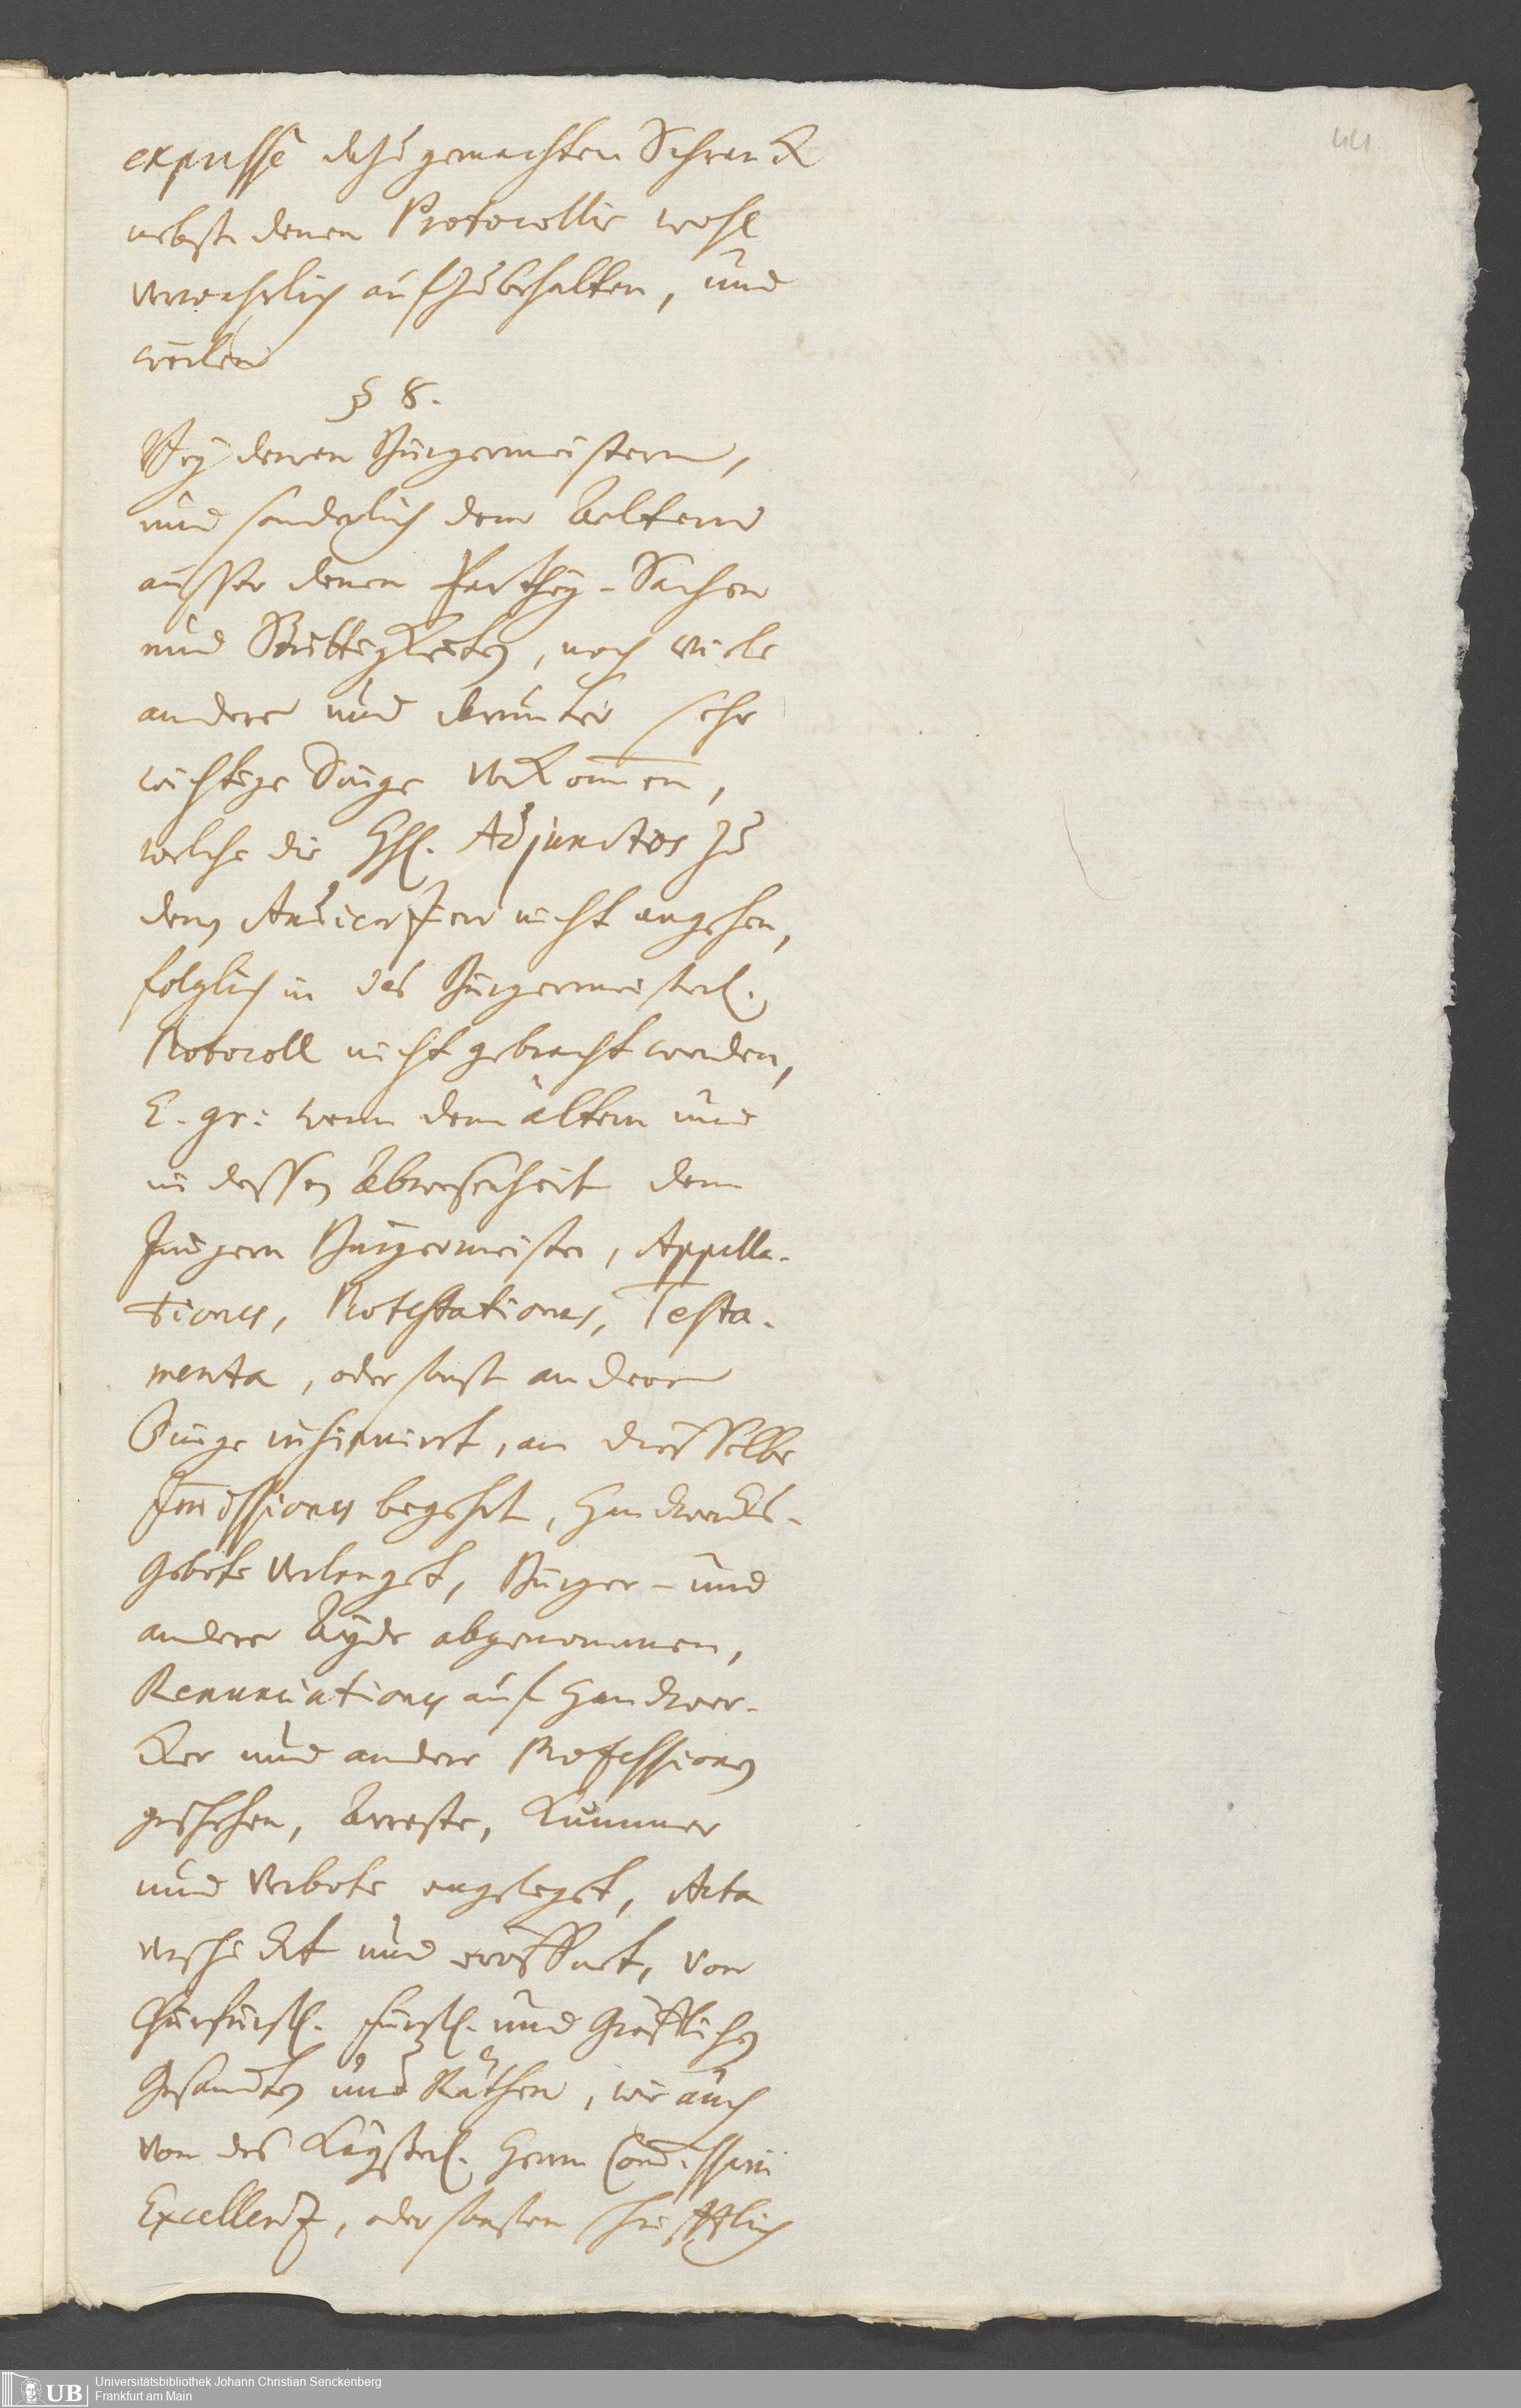 44
expressè dazu gemachten Schranck
nebst denen Protocollis wohl
verwahrlich aufzubehalten, und
weilen
§ 8.
Bey denen Bürgermeistern,
und sonderlich dem Aeltern
ausser denen Parthey-Sachen
und Strittigkeiten, noch viele
andere und darunter sehr
wichtige Dinge vorkommen,
welche die HH. Adjunctos zu
denen Audientien nicht angehen,
folglich in das Bürgermeisterl.
Protocoll nicht gebracht werden,
E. gr: wenn dem ältern und
in dessen Abwesenheit dem
Jüngern Bürgermeister, Appella-
tiones, Protestationes, Testa-
menta, oder sonst andere
Dinge insinuirt, an dieselbe
Immissiones begehrt, Handwercks-
Gebote verlangt, Bürger- und
andere Ayde abgenommen,
Renunciationes auf Handwer-
ker und andere Professionen
geschehen, Arreste, Kummer
und Verbote angelegt, Acta
verschickt und eröffnet, von
Churfürstl. Fürstl. und Gräfflichen
Gesandten und Räthen, wie auch
von des Kayserl. Herrn Commissarii
Excellentz, oder sonsten schrifftlich
UB
Universitätsbibliothek Johann Christian Senckenberg
Frankfurt am Main